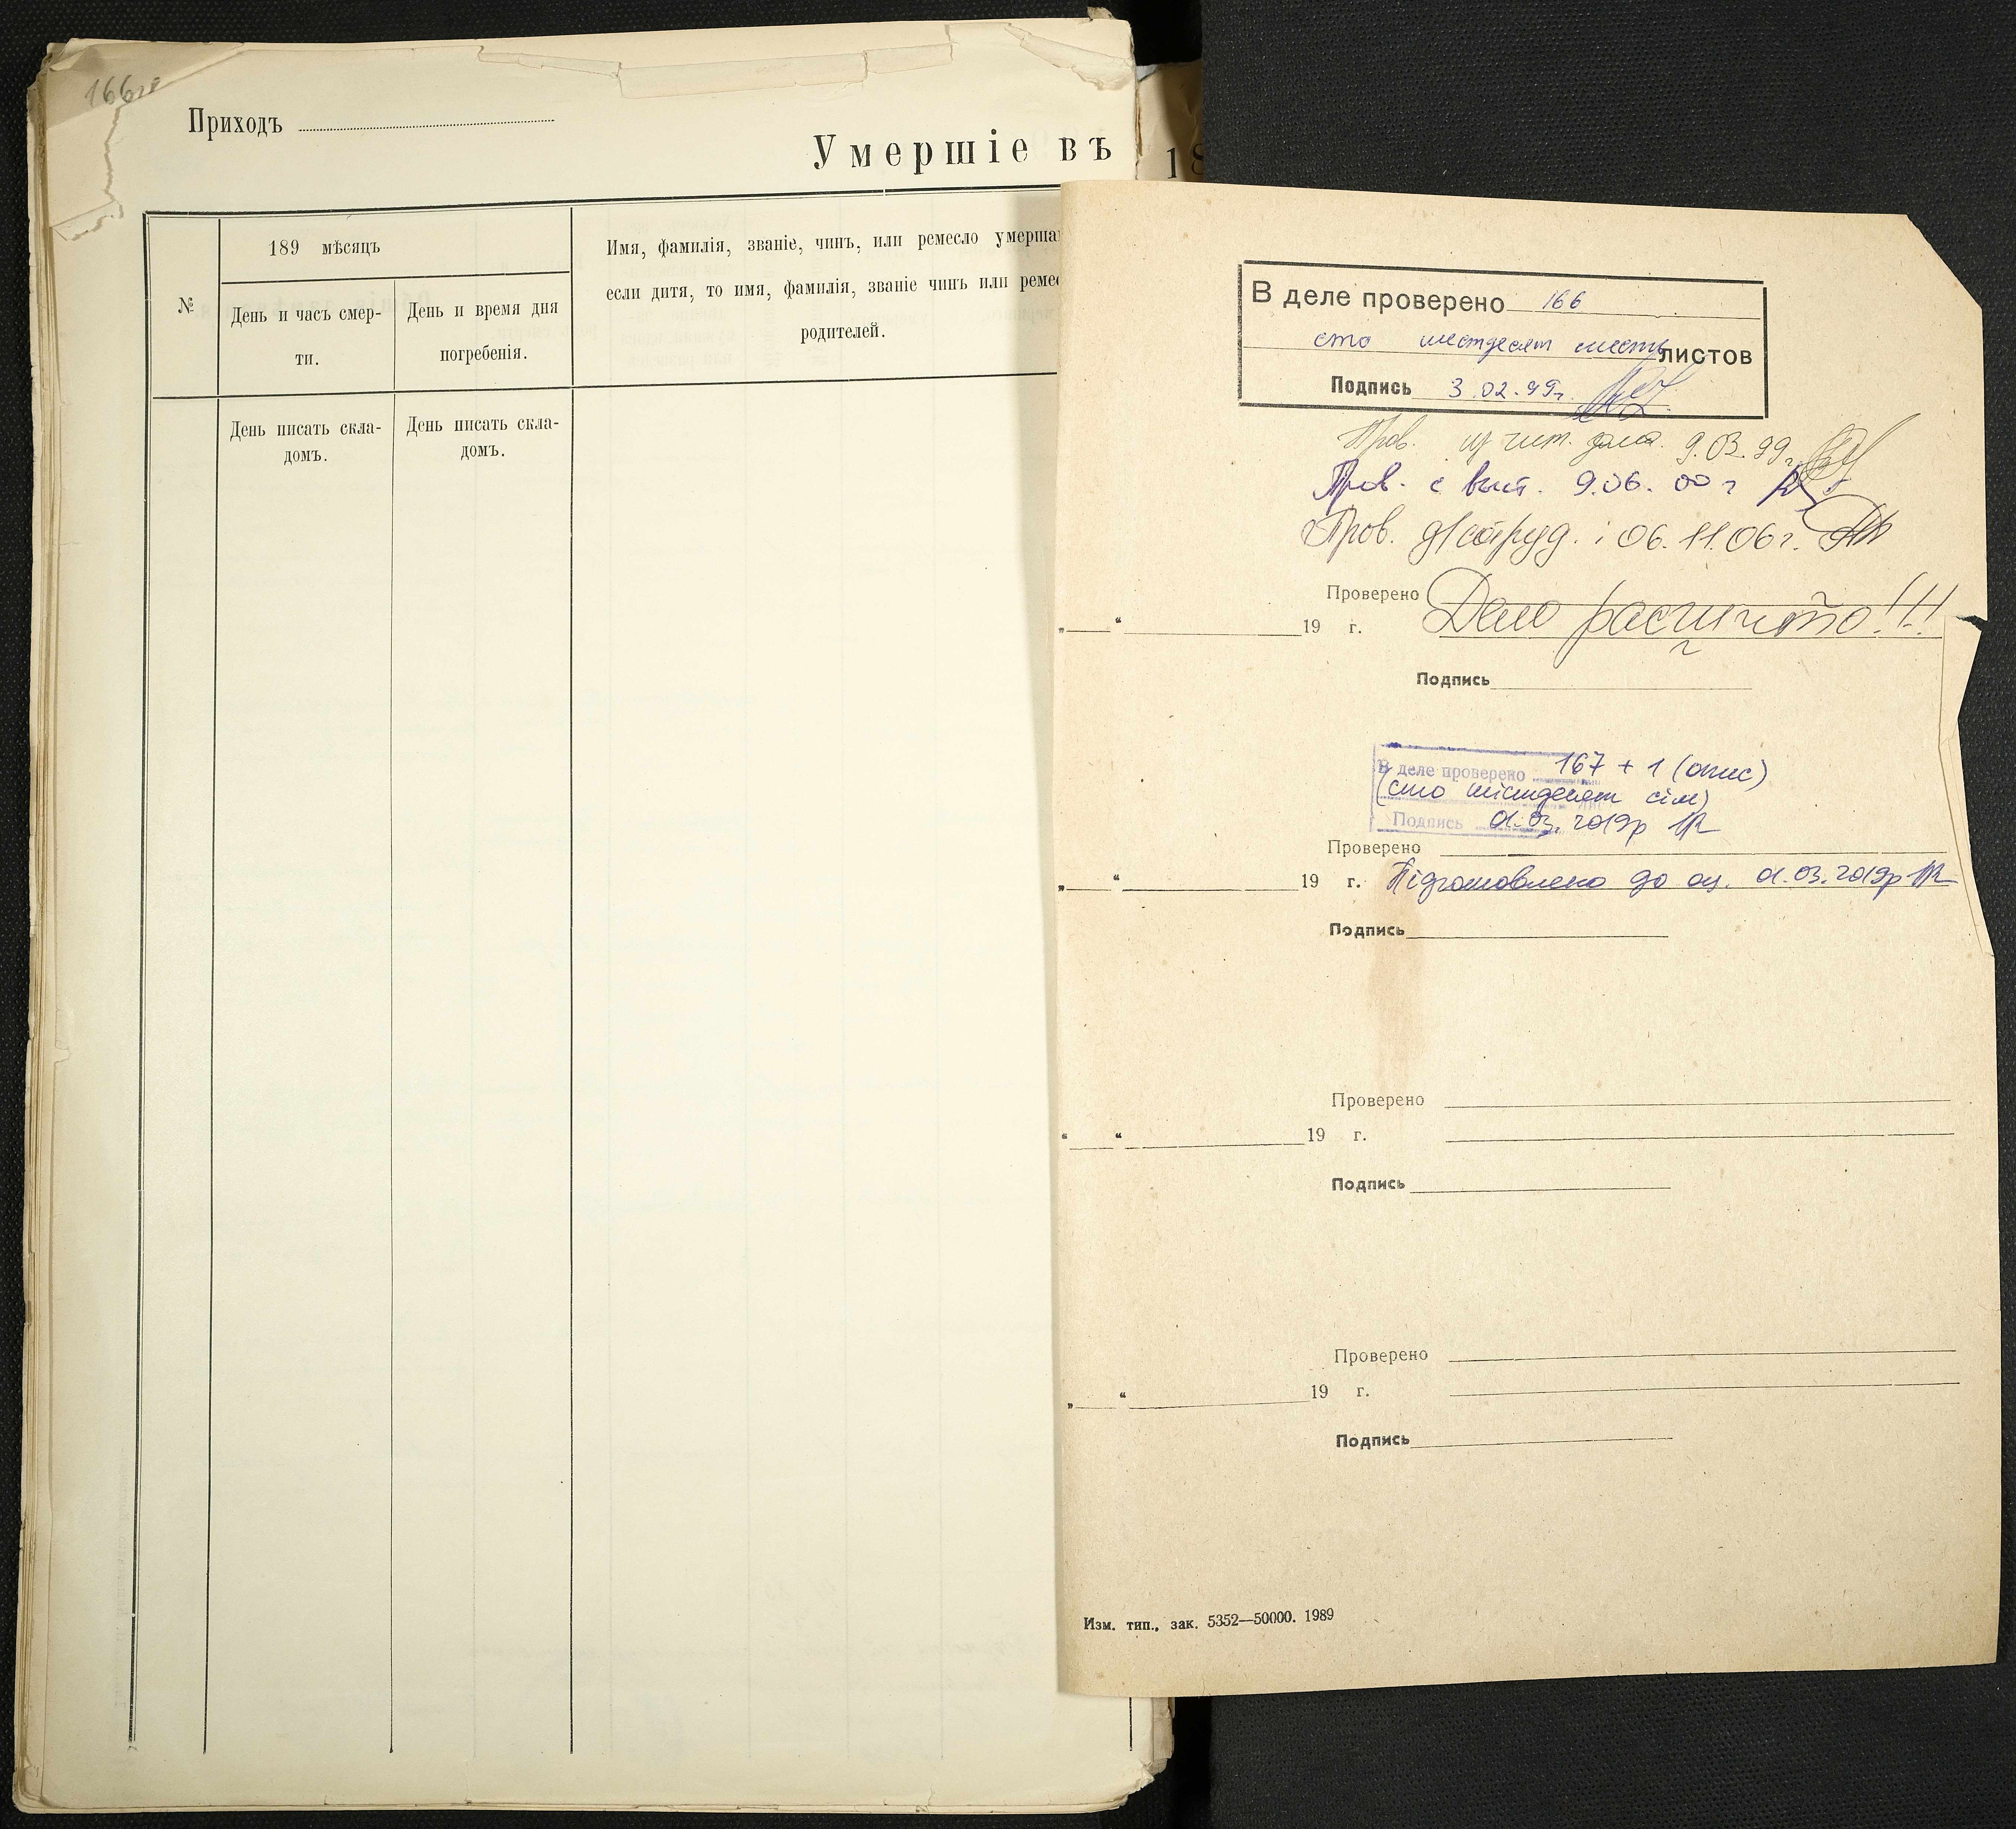 166
Приходъ
Умершіе въ 18
№
189 мѣсяцъ
День и часъ смер-
ти.
День и время дня
погребенія.
Имя, фамилія, званіе, чинъ, или ремесло умерша
если дитя, то имя, фамилія, званіе чинъ или ремес
родителей.
День писать скла-
домъ.
День писать скла-
домъ.
В деле проверено 166
сто шестдесят шесть листов
Подпись 3.02.99г.
Пров. чит. зала. 9.03.99г.
Пров. с выст. 9.06.00г
Пров. 06.11.06г.
Проверено Дело расшито!!!
„ “ 19 г.
Подпись
В деле проверено 167 + 1 (опис)
(сто шістдесят сім)
Подпись 01.03.2019р
Проверено
„ “ 19 г. Підготовлено до оц. 01.03.2019р
Подпись
Проверено
“ “ 19 г.
Подпись
Проверено
„ “ 19 г.
Подпись
Изм. тип., зак. 5352—50000. 1989